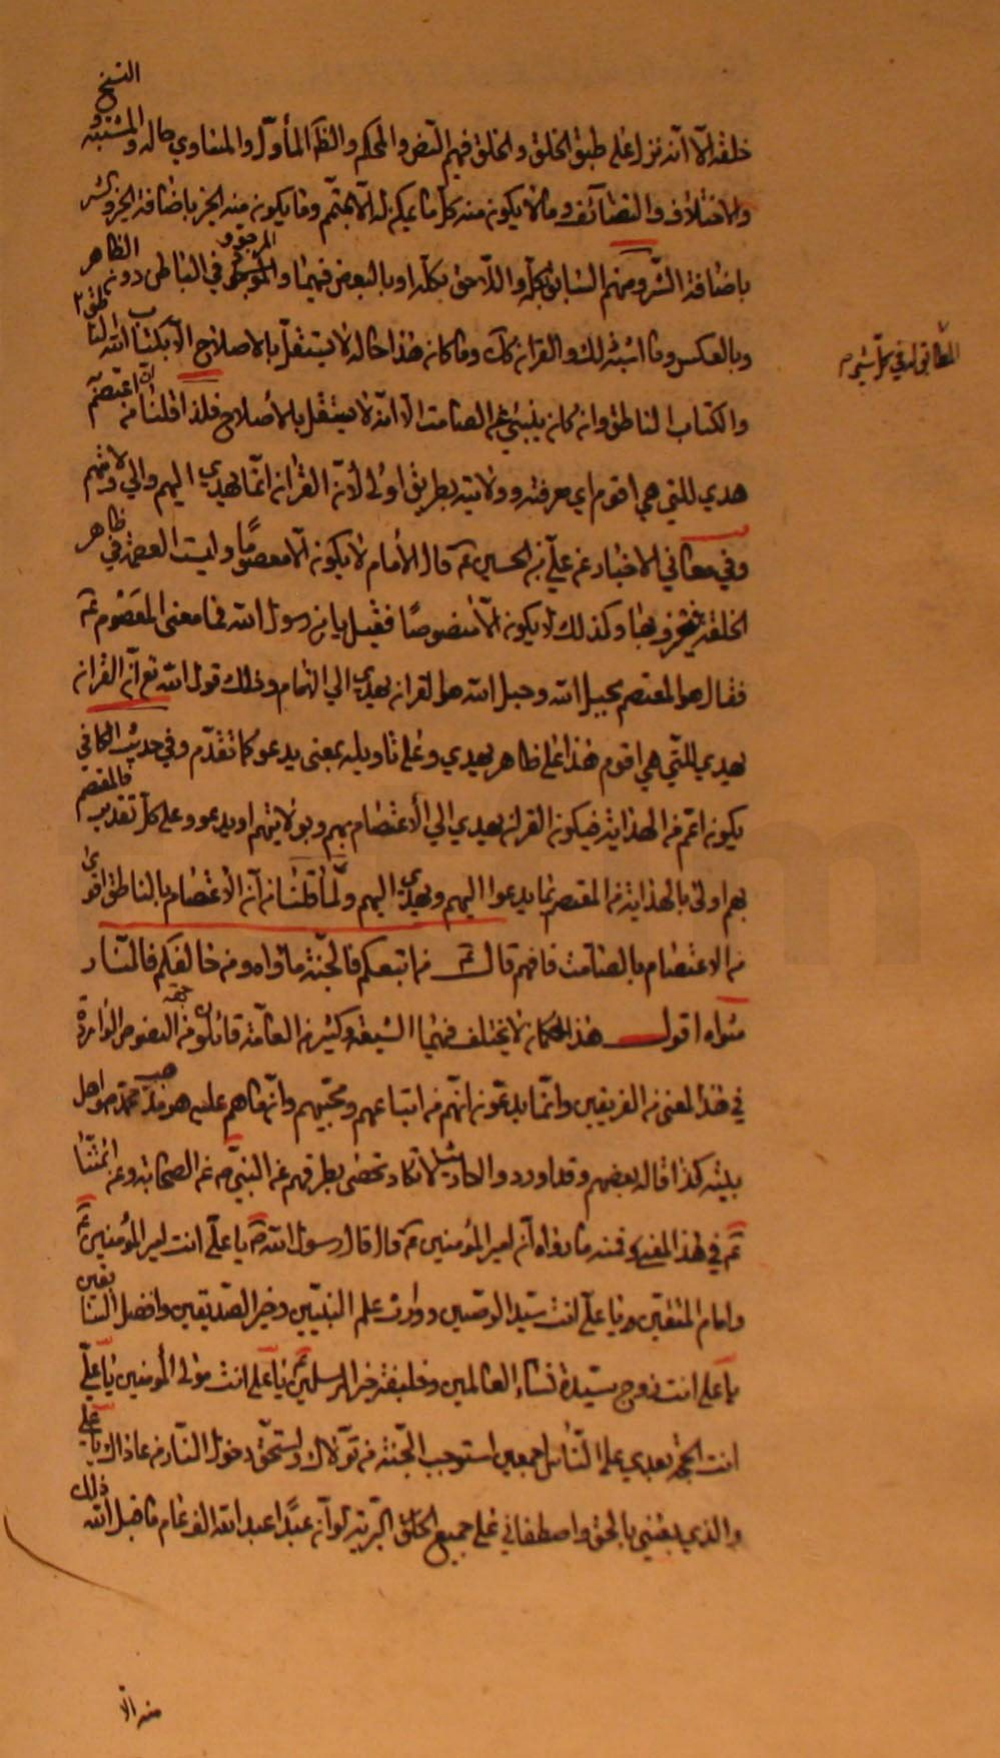 خلقه الا انه نزل على طبق الخلق والخلق فيهم النص والمحكم والظاهر المأول والمتساوي حاله والمشتبه النسخ و
والاختلاف والتضائف وما لا يكون منه كل ما يمكن له الا بمتمم وما يكون منه الخير باضافة الخير والشر
باضافة الشر ومنهم السابق بكله واللاحق بكله او بالبعض فيهما والموجود في الباطن دون الظاهر
وبالعكس وما اشبه ذلك والقرآن كك وما كان هذا حاله لا يستقل بالاصلاح الا بكتاب الله الناطق
المطابق له في كل شيء م
والكتاب الناطق وان كان ينبئ عن الصامت الا انه لا يستقل بالاصلاح فلذا قلنا ان اعتصم
هدي للتي هي اقوم اي معرفته وولايته بطريق اولى لأن القرآن انما يهدي اليهم والى ولايتهم
وفي معاني الاخبار عن علي بن الحسين عم قال الأمام لا يكون الا معصوما وليست العصمة في ظاهر
الخلقة فيعرف بها وكذلك لا يكون الا منصوصا فقيل يا بن رسول الله فما معنى المعصوم عم
فقال هو المعتصم بحبل الله وحبل الله هو القرآن يهدي الى الامام وذلك قول الله تع ان القرآن
يهدي للتي هي اقوم هذا على ظاهر يهدي وعلى تأويله بمعنى يدعو كما تقدم وفي حديث الكافي
يكون اعم من الهداية فيكون القرآن يهدي الى الأعتصام بهم وبولايتهم او يدعو وعلى كل تقدير فالمعتصم
بهم اولى بالهداية من المعتصم بما يدعوا اليهم ويهدي اليهم ولما قلنا من ان الأعتصام بالناطق اقوى
من الاعتصام بالصامت فافهم قال عم من اتبعكم فالجنة مأواه ومن خالفكم فالنار
مثواه اقول هذا الحكمان لا يختلف فيهما الشيعة وكثير من العامة قائلون من جهة النصوص الواردة
في هذا المعنى من الفريقين وانما يدعون انهم من اتباعهم ومحبيهم وان ما هم عليه هو مذهب محمد ص واهل
بيته كذا قاله بعضهم وقد اوردوا احاديث لا تكاد تحصى بطرقهم عن النبي ص عن الصحابة وعن ائمتنا
عم في هذا المعنى فمنه ما رواه ان امير المؤمنين عم قال قال رسول الله ص يا علي انت امير المؤمنين عم
وامام المتقين ويا علي انت سيد الوصيين ووارث علم النبيين وخير الصديقين وافضل السابقين
يا علي انت زوج سيدة نساء العالمين وخليفة خير المرسلين يا علي انت مولى المؤمنين يا علي
انت الحجة بعدي على الناس اجمعين استوجب الجنة من تولاك واستحق دخول النار من عاداك يا علي
والذي بعثني بالحق واصطفاني على جميع الخلق البرية لو ان عبدا عبد الله الف عام ما قبل الله ذلك
منه الا